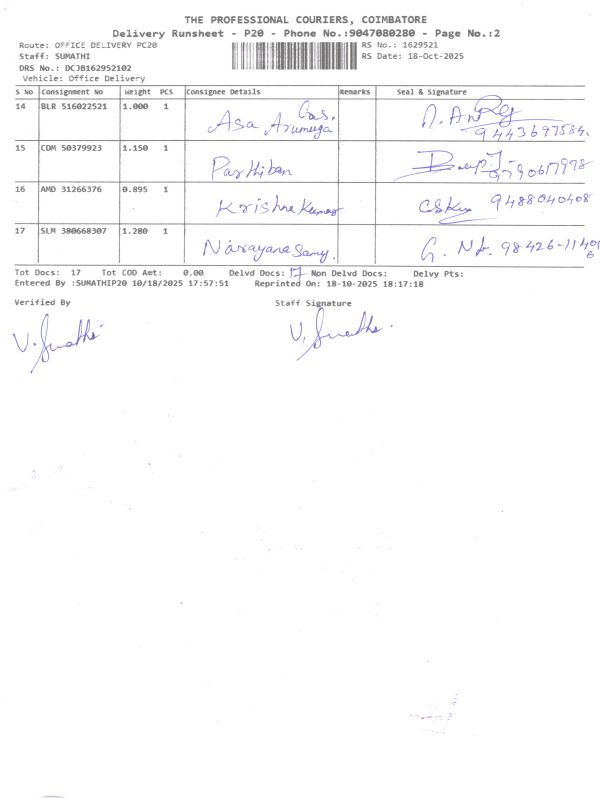 THE PROFESSIONAL COURIERS, COIMBATORE
Delivery Runsheet - P20 - Phone No.:9047080280 - Page No.:2
Route: OFFICE DELIVERY PC20 RS No.: 1629521
Staff: SUMATHI RS Date: 18-Oct-2025
DRS No.: DCJB162952102
Vehicle: Office Delivery
S No Consignment No Weight PCS Consignee Details Remarks Seal & Signature
14 BLR 516022521 1.000 1 Asa Arumuga 9443697584.
15 CDM 50379923 1.150 1 Parthiban
16 AMD 31266376 0.895 1 Krishna Kumar 9488040408
17 SLM 380668307 1.280 1 Narayana Samy. G. 98426-11406
Tot Docs: 17 Tot COD Amt: 0.00 Delvd Docs: 17 Non Delvd Docs: Delvy Pts:
Entered By :SUMATHIP20 10/18/2025 17:57:51 Reprinted On: 18-10-2025 18:17:18
Verified By Staff Signature
V. Sumathi V. Sumathi.